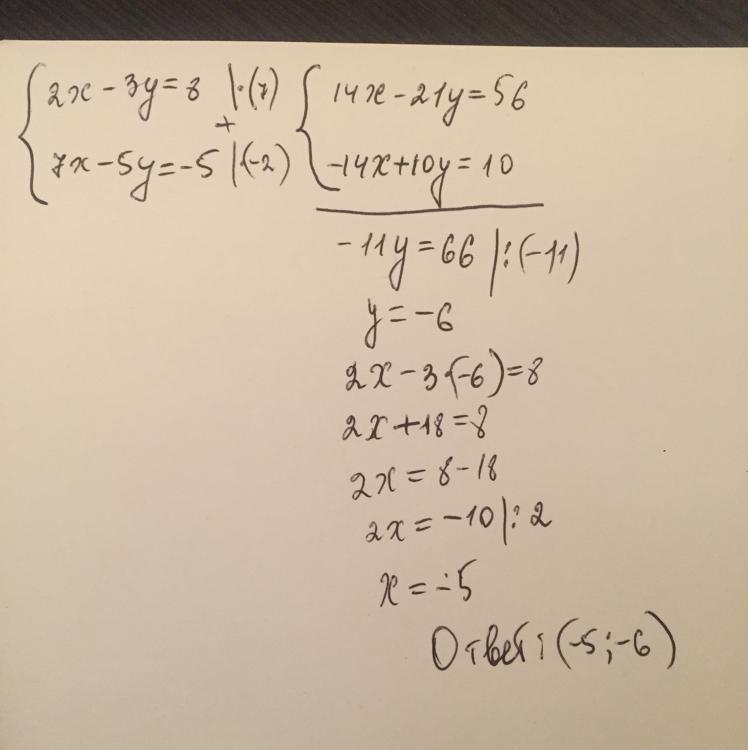 2x - 3y = 8 |·(7)
+
7x - 5y = -5 |·(-2)
14x - 21y = 56
-14x + 10y = 10
-11y = 66 |:(-11)
y = -6
2x - 3·(-6) = 8
2x + 18 = 8
2x = 8 - 18
2x = -10 |: 2
x = -5
Ответ: (-5; -6)